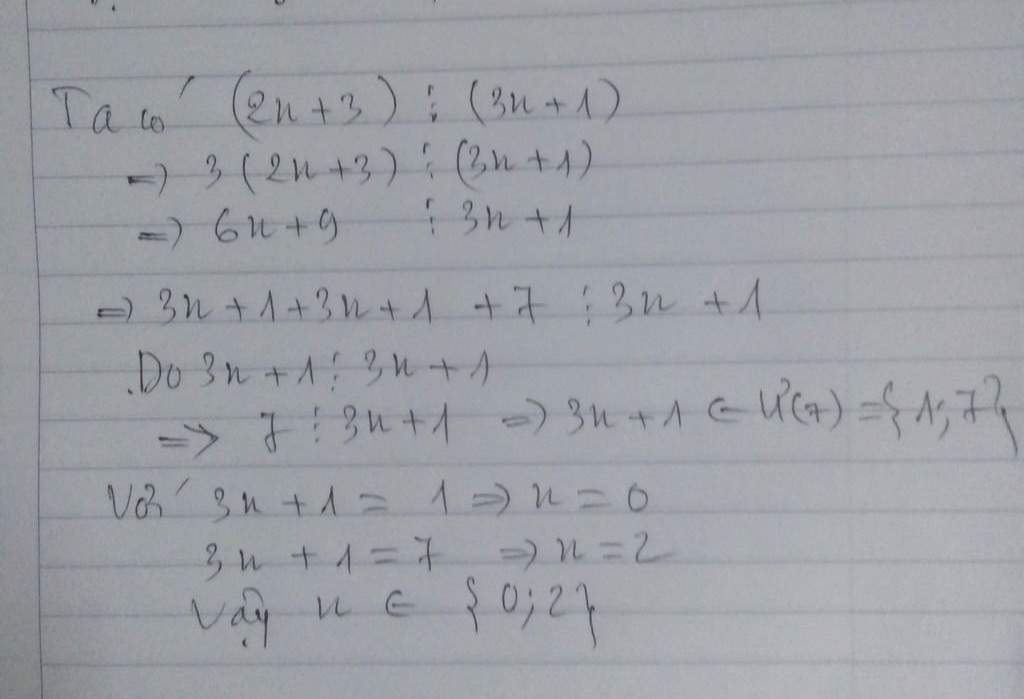 Ta có (2n+3) ⋮ (3n+1)
=> 3(2n+3) ⋮ (3n+1)
=> 6n+9 ⋮ 3n+1
=> 3n+1+3n+1 +7 ⋮ 3n+1
Do 3n+1 ⋮ 3n+1
=> 7 ⋮ 3n+1 => 3n+1 ∈ Ư(7) = {1;7}
Với 3n+1 = 1 => n = 0
3n+1 = 7 => n = 2
Vậy n ∈ {0;2}